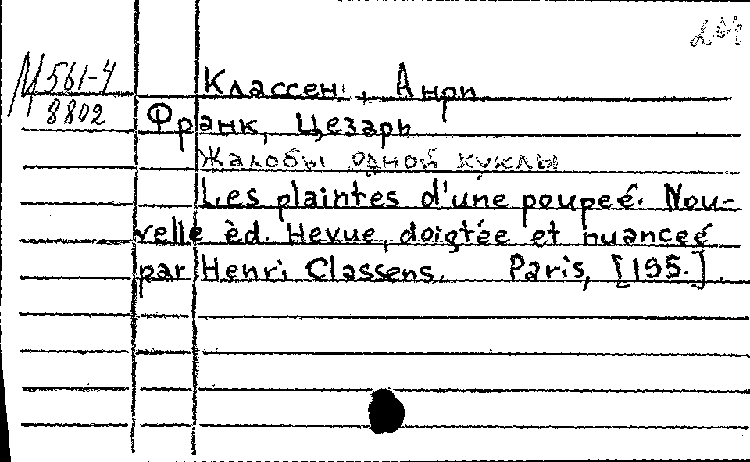 М 561-4
8802
Классен, Анри
Франк, Цезарь
Жалобы одной куклы
Les plaintes d'une poupeé. Nou-
velle èd. Hevue, doigtée et nuanceé
par Henri Classens. Paris, [195.].